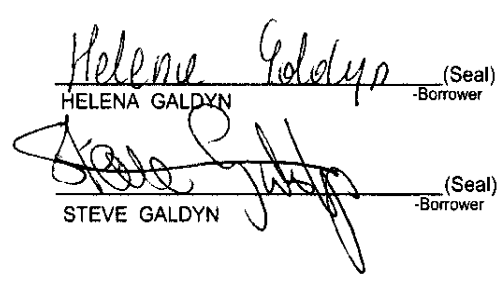 Helena Galdyn (Seal)
HELENA GALDYN -Borrower
Steve Galdyn (Seal)
STEVE GALDYN -Borrower